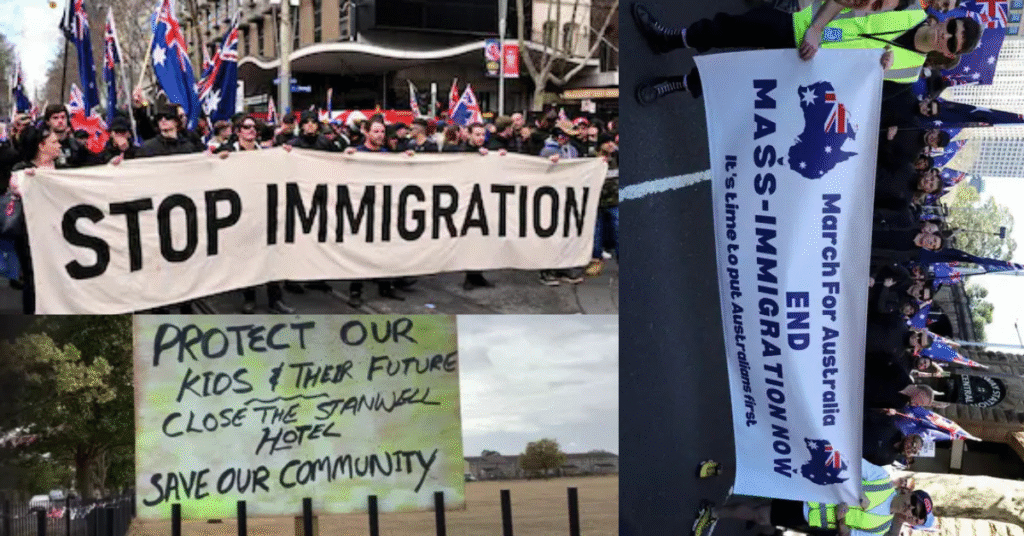 STOP IMMIGRATION
PROTECT OUR
KIDS & THEIR FUTURE
CLOSE THE STANWELL
HOTEL
SAVE OUR COMMUNITY
March For Australia
END
MASS-IMMIGRATION NOW
It's time to put Australians first